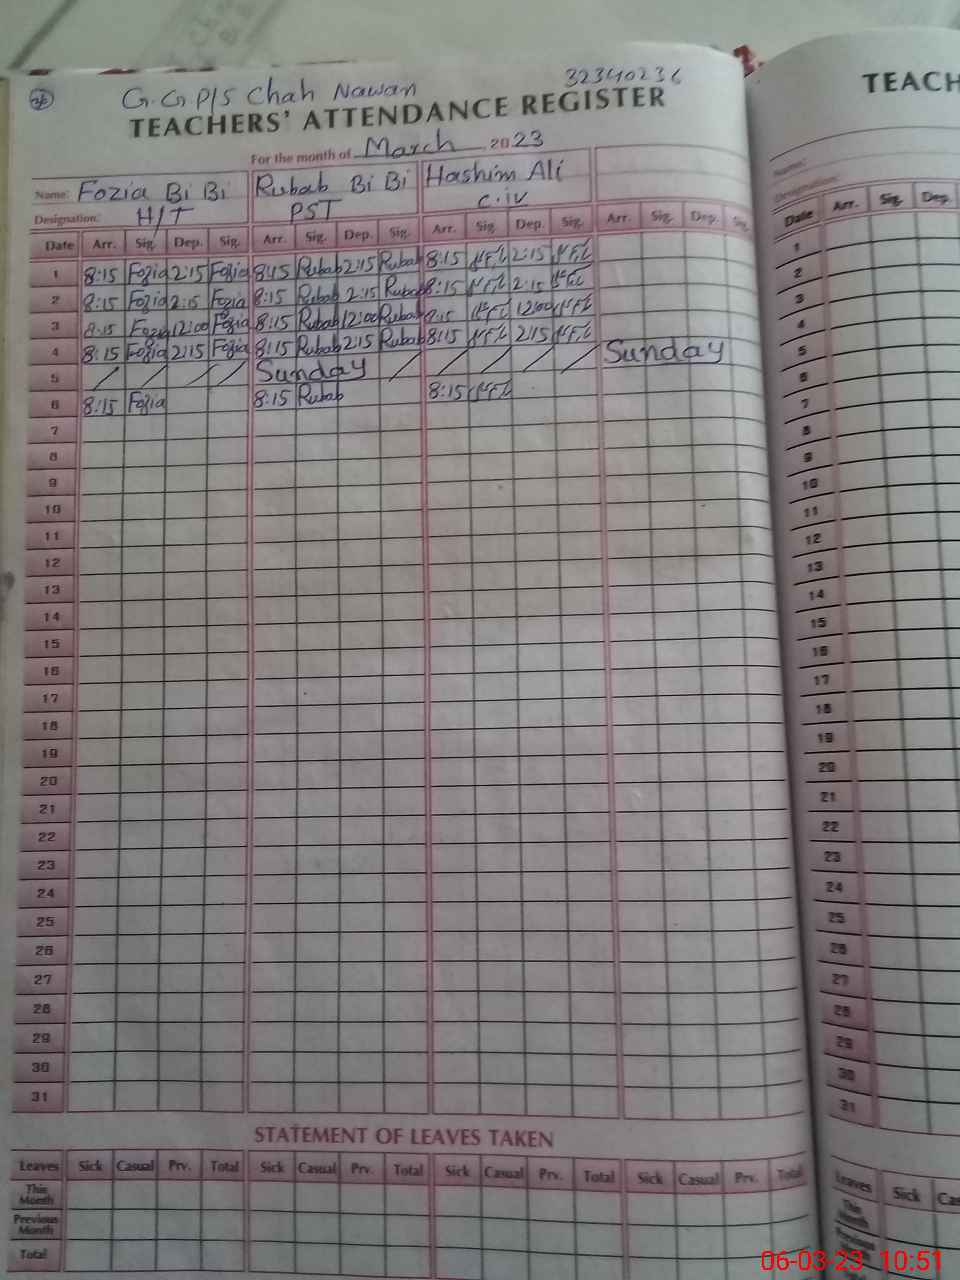 G.G P/S Chah Nawan 32340236
TEACHERS' ATTENDANCE REGISTER
For the month of March 2023
Name: Fozia Bi Bi Rubab Bi Bi Hashim Ali
Designation: H/T PST C.iv
Date Arr. Sig. Dep. Sig. Arr. Sig. Dep. Sig. Arr. Sig. Dep. Sig. Arr. Sig. Dep. Sig.
1 8:15 Fozia 2:15 Fozia 8:15 Rubab 2:15 Rubab 8:15 2:15
2 8:15 Fozia 2:15 Fozia 8:15 Rubab 2:15 Rubab 8:15 2:15
3 8:15 Fozia 12:00 Fozia 8:15 Rubab 12:00 Rubab 8:15 12:00
4 8:15 Fozia 2:15 Fozia 8:15 Rubab 2:15 Rubab 8:15 2:15 Sunday
5 Sunday
6 8:15 Fozia 8:15 Rubab 8:15
7
8
9
10
11
12
13
14
15
16
17
18
19
20
21
22
23
24
25
26
27
28
29
30
31
STATEMENT OF LEAVES TAKEN
Leaves Sick Casual Prv. Total Sick Casual Prv. Total Sick Casual Prv. Total Sick Casual Prv. Total
This Month
Previous Month
Total
TEACH
Name:
Designation:
Date Arr. Sig. Dep.
1
2
3
4
5
6
7
8
9
10
11
12
13
14
15
16
17
18
19
20
21
22
23
24
25
26
27
28
29
30
31
Leaves Sick Cas
This Month
Previous Month
06-03-23 10:51